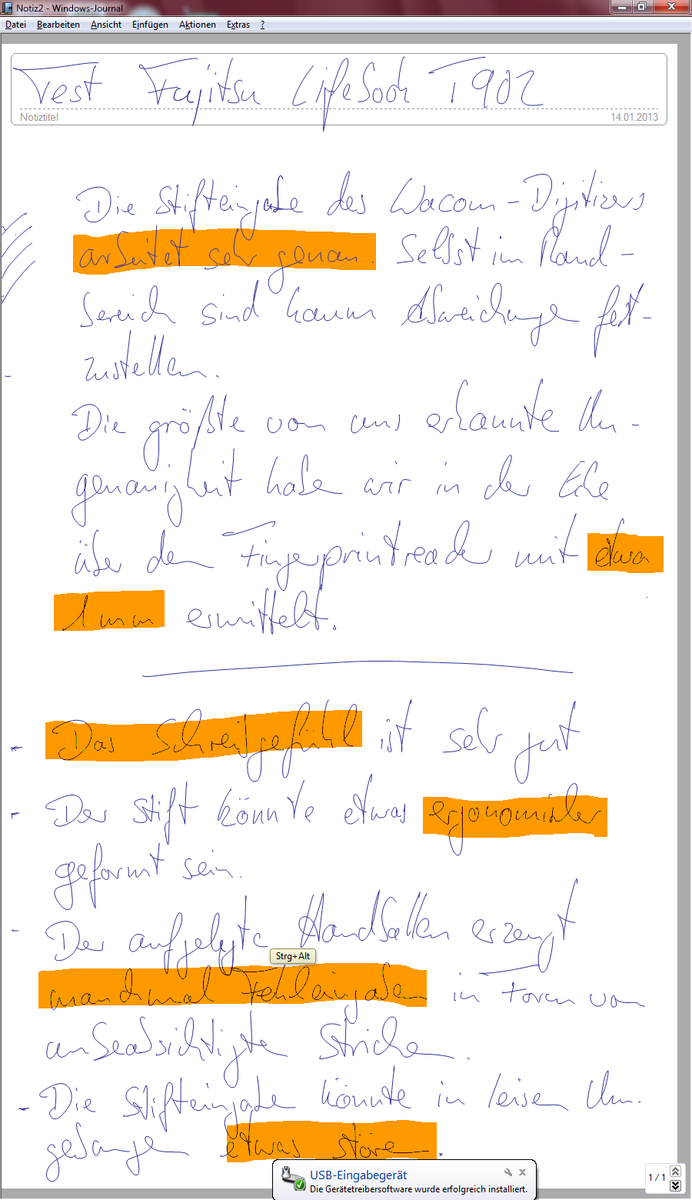 Notiz2 - Windows-Journal
Datei Bearbeiten Ansicht Einfügen Aktionen Extras ?
Test Fujitsu LifeBook T902
Notiztitel 14.01.2013
Die Stifteingabe des Wacom-Digitizers
arbeitet sehr genau. Selbst im Rand-
bereich sind kaum Abweichungen fest-
zustellen.
Die größte von uns erkannte Un-
genauigkeit haben wir in der Ecke
über dem Fingerprintreader mit etwa
1 mm ermittelt.
- Das Schreibgefühl ist sehr gut
- Der Stift könnte etwas ergonomischer
geformt sein.
- Der aufgelegte Handballen erzeugt
Strg+Alt
manchmal Fehleingaben in Form von
unbeabsichtigte Striche.
- Die Stifteingabe könnte in leisen Um-
gebungen etwas stören.
USB-Eingabegerät
Die Gerätetreibersoftware wurde erfolgreich installiert.
1 / 1